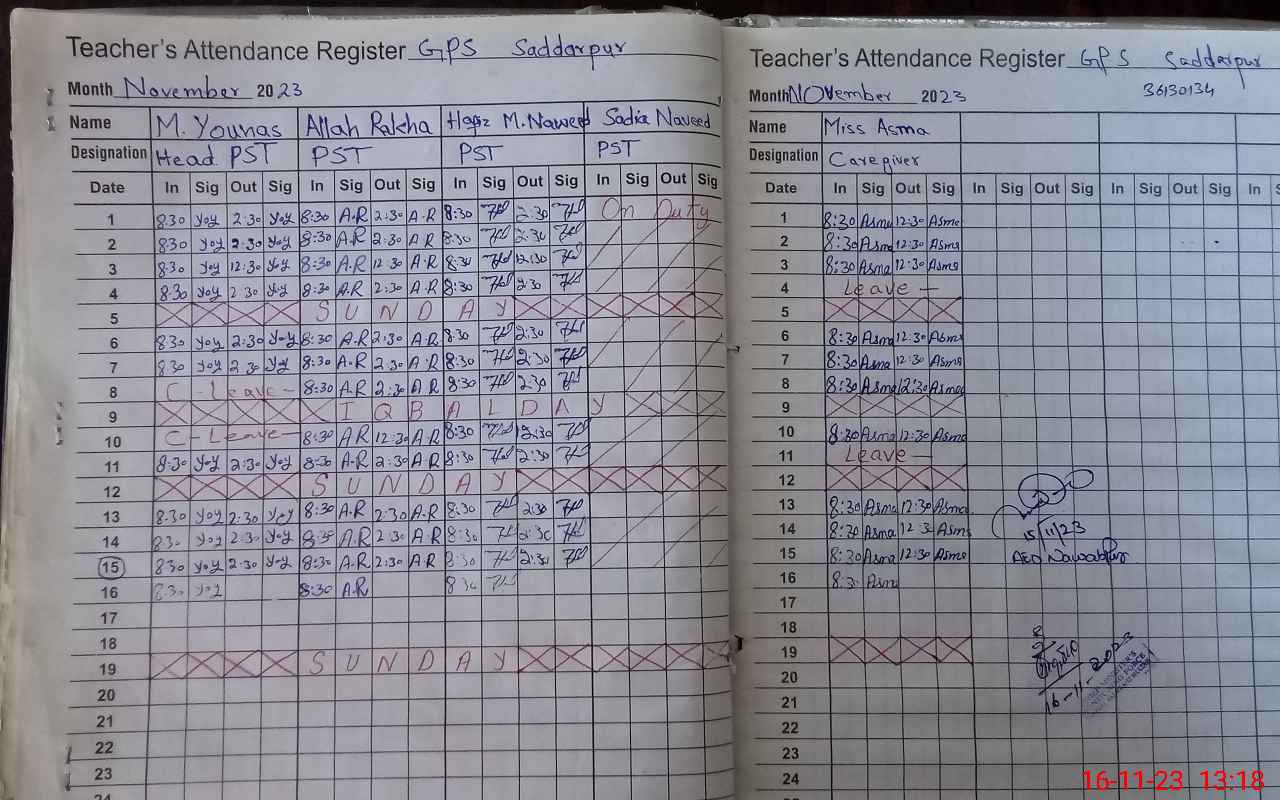 Teacher's Attendance Register GPS Saddarpur
Month November 2023
Name M. Younas Allah Rakha Hafiz M.Naweed Sadia Naveed
Designation Head PST PST PST PST
Date In Sig Out Sig In Sig Out Sig In Sig Out Sig In Sig Out Sig
1 8:30 yoy 2:30 yoy 8:30 A.R 2:30 A.R 8:30 2:30 On Duty
2 8:30 yoy 2:30 yoy 8:30 A.R 2:30 A.R 8:30 2:30
3 8:30 yoy 12:30 yoy 8:30 A.R 12:30 A.R 8:30 12:30
4 8:30 yoy 2:30 yoy 8:30 A.R 2:30 A.R 8:30 2:30
5 S U N D A Y
6 8:30 yoy 2:30 yoy 8:30 A.R 2:30 A.R 8:30 2:30
7 8:30 yoy 2:30 yoy 8:30 A.R 2:30 A.R 8:30 2:30
8 C - Leave - 8:30 A.R 2:30 A.R 8:30 2:30
9 I Q B A L D A Y
10 C - Leave - 8:30 A.R 12:30 A.R 8:30 12:30
11 8:30 yoy 2:30 yoy 8:30 A.R 2:30 A.R 8:30 2:30
12 S U N D A Y
13 8:30 yoy 2:30 yoy 8:30 A.R 2:30 A.R 8:30 2:30
14 8:30 yoy 2:30 yoy A.R 2:30 A.R 8:30 2:30
15 8:30 yoy 2:30 yoy 8:30 A.R 2:30 A.R 8:30 2:30
16 8:30 yoy 8:30 A.R 8:30
17
18
19 S U N D A Y
20
21
22
23
24
Teacher's Attendance Register GPS Saddarpur
Month November 2023 36130134
Name Miss Asma
Designation Caregiver
Date In Sig Out Sig In Sig Out Sig In Sig Out Sig In S
1 8:30 Asma 12:30 Asma
2 8:30 Asma 12:30 Asma
3 8:30 Asma 12:30 Asma
4 Leave -
5
6 8:30 Asma 12:30 Asma
7 8:30 Asma 12:30 Asma
8 8:30 Asma 12:30 Asma
9
10 8:30 Asma 12:30 Asma
11 Leave -
12
13 8:30 Asma 12:30 Asma
14 8:30 Asma 12:3 Asma
15 8:30 Asma 12:30 Asma
16 8:30 Asma
17
18
19
20
21
22
23
24
15/11/23
AEO Nawabpur
16-11-2023
16-11-23 13:18